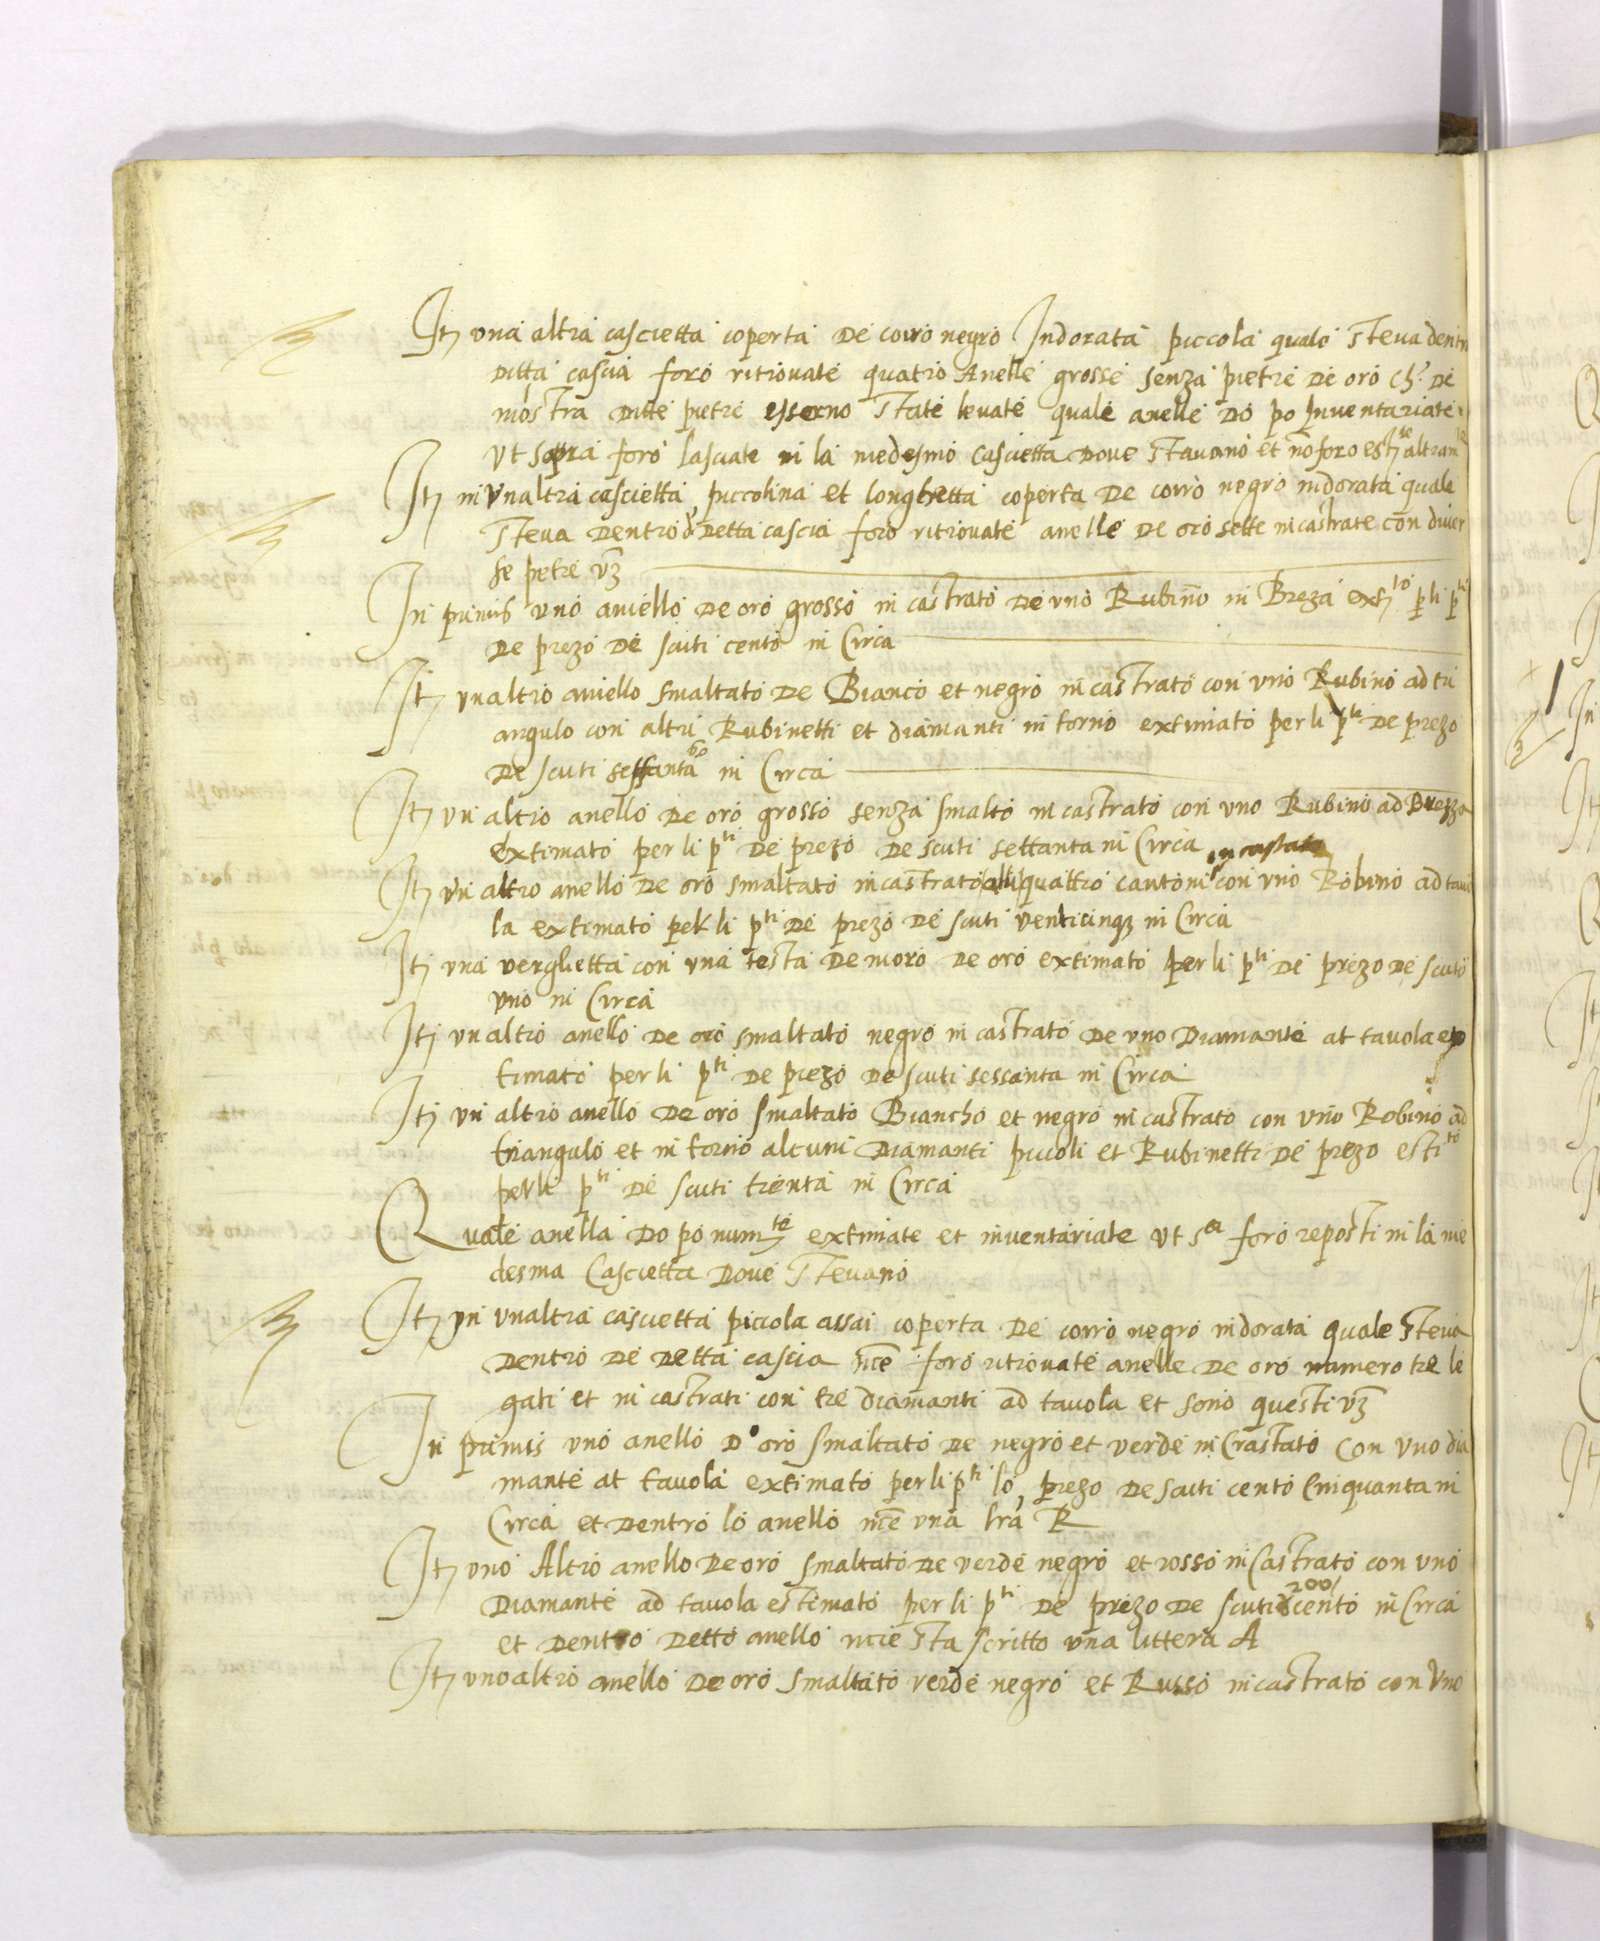 It] una altra cascietta coperta de corro negro Indorata piccola quale steva dentr
ditta cascia foro ritrovate quatro Anelle grosse senza pietre de oro ch.e de
mostra ditte pietre esserno state levate quale anelle do po Inventariate
ut sopra foro lasciate in la medesmo cascietta dove stavano et no foro est.te altram.te
It] in unaltra cascietta piccolina et longhetta coperta de corro negro indorata quale
steva dentro d detta cascia foro ritrovate anelle de oro sette incastrate con diver
se petre vz
In primis uno aniello de oro grosso incastrato de uno Rubino in Breza ext.to p li p.ti
de prezo de scuti cento in Circa
It] unaltro aniello smaltato de Bianco et negro incastrato con uno Rubino ad tri
angulo con altri Rubinetti et diamanti in torno extimato per li p.ti de prezo
de scuti sessanta 60 in Circa
It] un altro anello de oro grosso senza smalto incastrato con uno Rubino ad Brezza
extimato per li p.ti de prezo de scuti settanta in Circa
It] un altro anello de oro smaltato incastrato alli quattro cantoni incastrato con uno Robino ad tavo
la extimato per li p.ti de prezo de scuti venticinq3 in Circa
It] una verghetta con una testa de moro de oro extimato per li p.ti de prezo de scuto
uno in Circa
It] unaltro anello de oro smaltato negro incastrato de uno Diamante at tavola ex
timato per li p.ti de prezo de scuti sessanta in Circa
It] un altro anello de oro smaltato Biancho et negro incastrato con uno Robino ad
triangulo et in torno alcuni Diamanti piccoli et Rubinetti de prezo esti.to
per li p.ti de scuti trenta in Circa
Quale anella do po num.te extimate et inventariate ut s.a foro reposti in la me
desma Cascietta dove stevano
It] in unaltra cascietta piccola assai coperta de corro negro indorata quale steva
dentro de detta cascia nce foro ritrovate anelle de oro numero tre le
gati et incastrati con tre diamanti ad tavola et sono questi vz
In primis uno anello d oro smaltato de negro et verde incrastato con uno dia
mante at tavola extimato per li p.ti lo prezo de scuti cento cinquanta in
Circa et dentro lo anello nce una lra R
It] uno Altro anello de oro smaltato de verde negro et rosso incastrato con uno
Diamante ad tavola estimato per li p.ti de prezo de scuti 200 cento in Circa
et dentro detto anello nce sta scritto una littera A
It] unoaltro anello de oro smaltato verde negro et Russo incastrato con uno